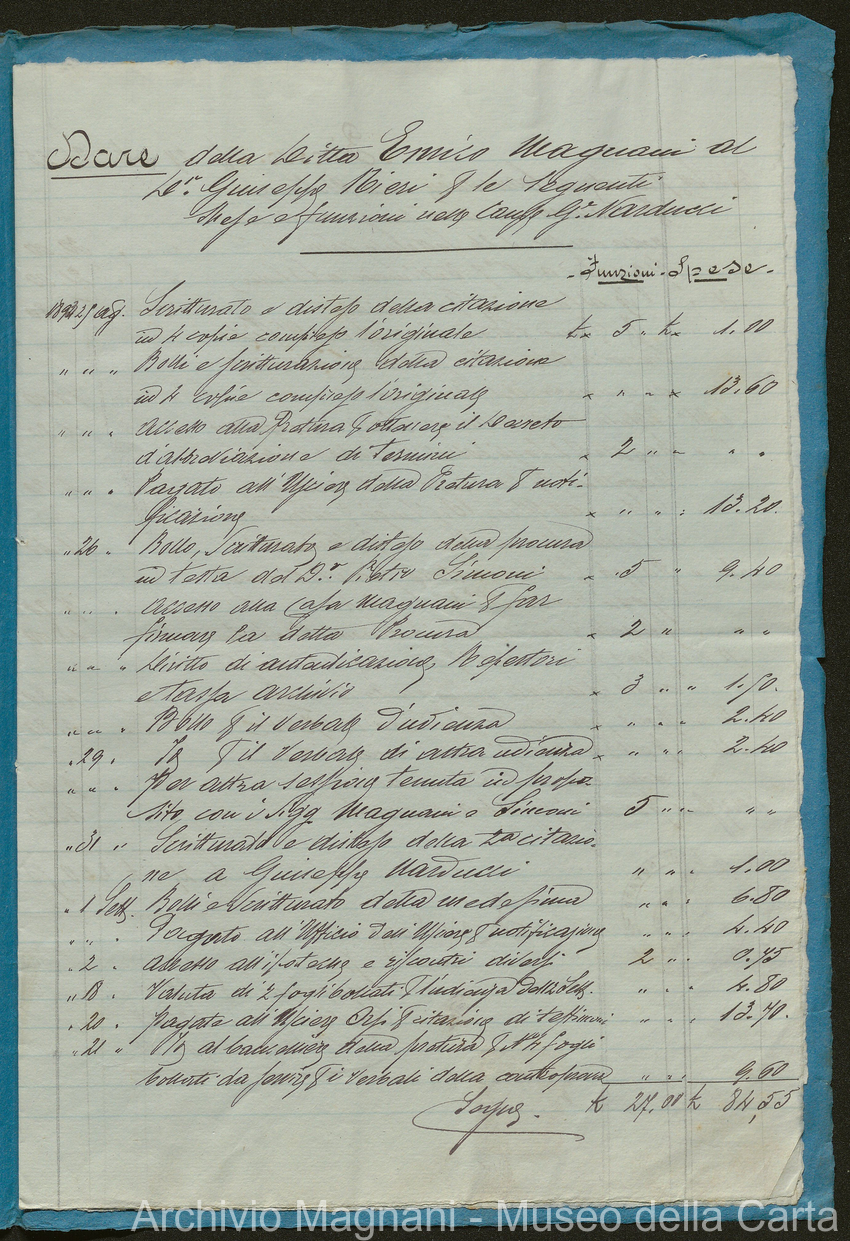 Dare della Ditta Enrico Magnani al
Dr. Giuseppe Rieri p le seguenti
Spese e funzioni nella Causa Gr. Narducci
Funzioni - Spese -
25 ag. Scritturato e disteso della citazione
in 4 copie compreso l'originale £ 5 " £ 1.00
" " " Bolli e scritturazione della citazione
in 4 copie compreso l'originale " " " 13.60
" " " Accesso alla Pretura p ottenere il Decreto
d'abbreviazione di termini " 2 " " " "
" " " Pagato all'Usciere della Pretura p noti-
ficazione " " " 13.20
" 26 " Bollo, Scritturato e disteso della procura
in testa del Dr. Pietro Simoni " 5 " 9.40
" " " Accesso alla Casa Magnani p far
firmare la detta Procura " 2 " " "
" " " Diritto di autenticazione, Repertori
e tassa archivio " 3 " " 1.50
" " " Bollo p il Verbale d'udienza " " " 2.40
" 29 " Id p il Verbale di altra udienza " " " 2.40
" " " Per altra sessione tenuta in propo-
sito con i Sigg Magnani e Simoni 5 " " " "
" 31 " Scritturato e disteso della 2a citazio-
ne a Giuseppe Narducci " " " 1.00
" 1 Sett. Bolli e Scritturato della medesima " " " 6.80
" " " Pagato all'Ufficio dell'Usciere p notificazione " " " 4.40
" 2 " Accesso all'ipoteche e riscontri diversi 2 " " 0.75
" 18 " Valuta di 2 fogli bollati p l'udienza Sett. " " " 4.80
" 20 " Pagato all'Usciere p citazione di testimoni " " " 13.70.
" 21 " Id al Cancelliere della pretura p N 4 fogli
bollati da servire p i verbali della controprova " " " 9.60
Segue - £ 27.00 £ 84,55
Archivio Magnani - Museo della Carta